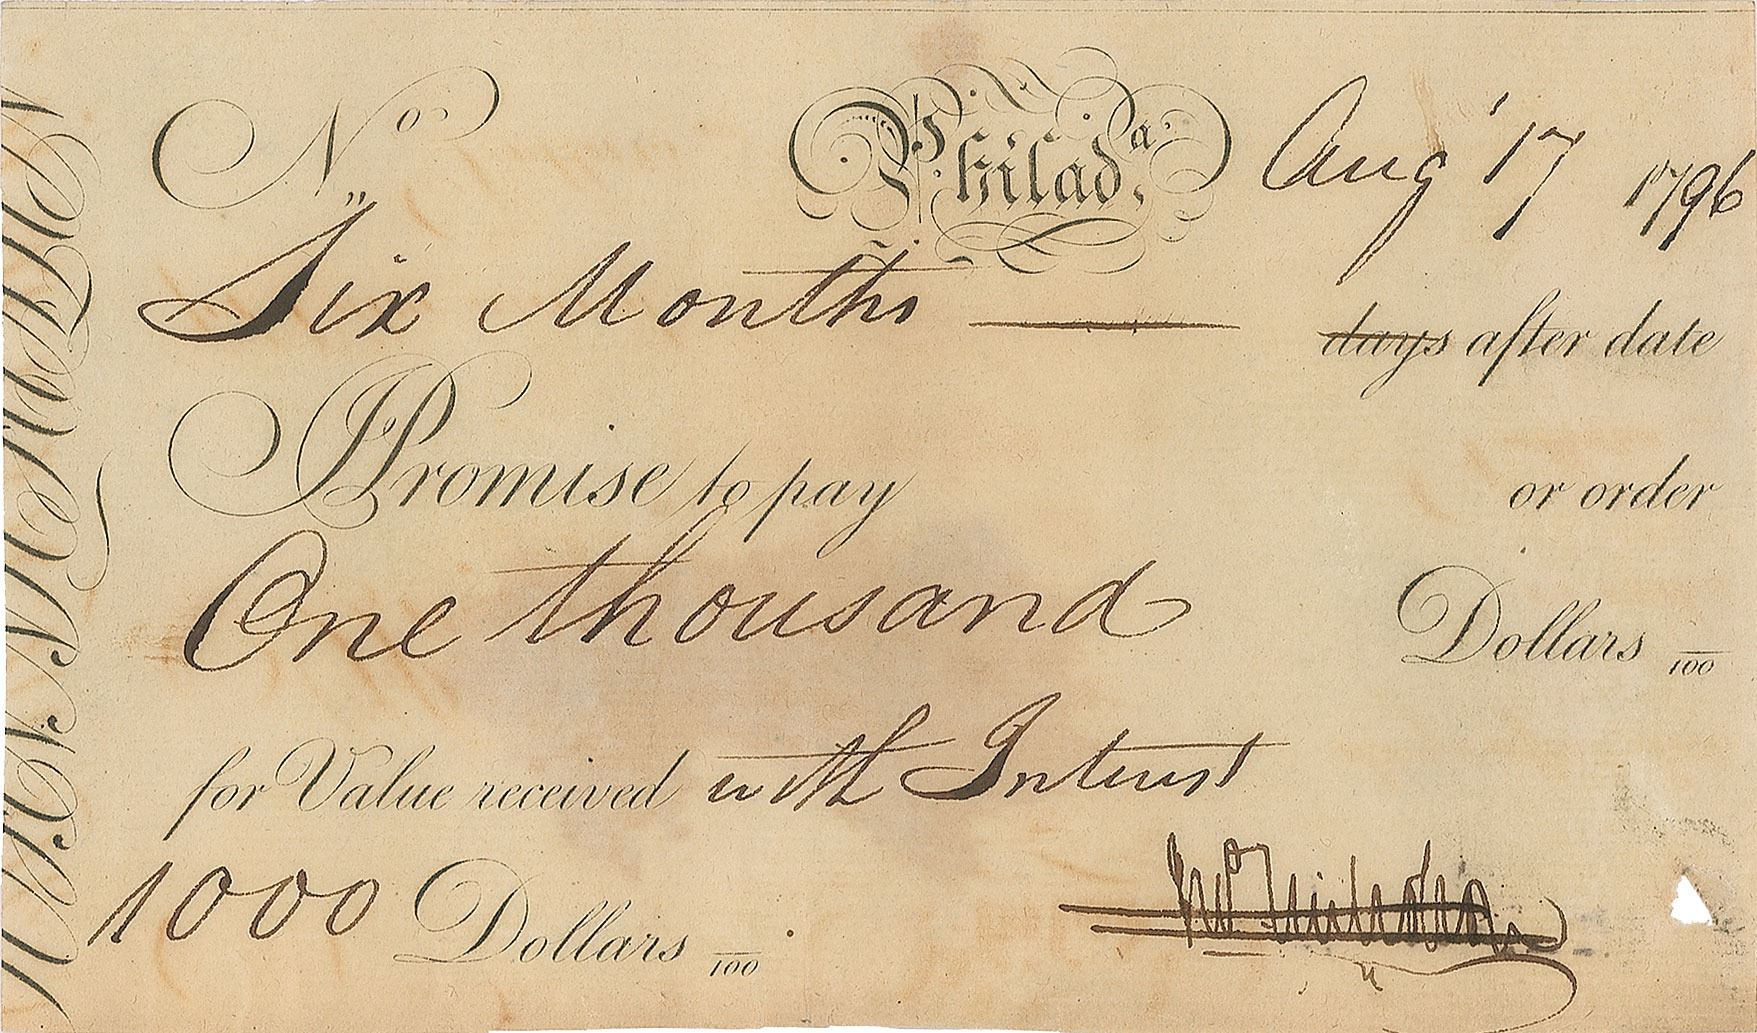 No.
Philada. Aug' 17 1796
Six Months days after date
Promise to pay or order
One thousand Dollars /100
for Value received with Interest
1000 Dollars /100